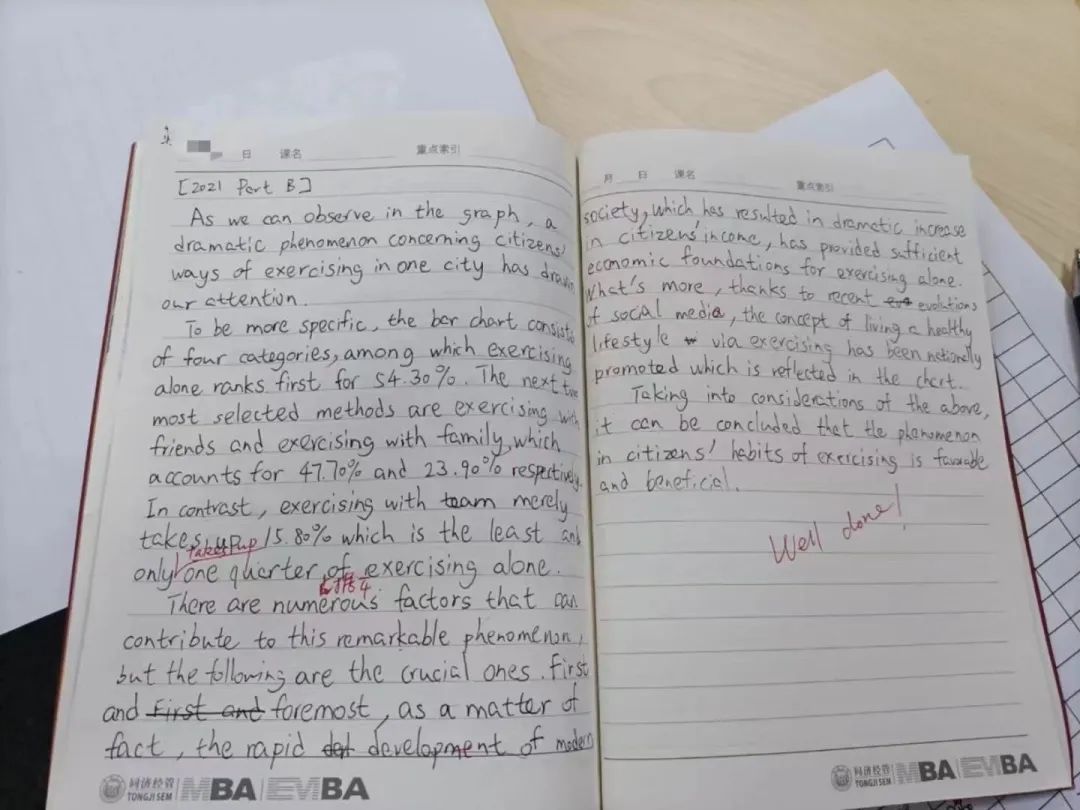 日 课名 重点索引
[2021 Part B]
As we can observe in the graph, a
dramatic phenomenon concerning citizens'
ways of exercising in one city has drawn
our attention.
To be more specific, the bar chart consists
of four categories, among which exercising
alone ranks first for 54.30%. The next two
most selected methods are exercising with
friends and exercising with family, which
accounts for 47.70% and 23.90% respectively.
In contrast, exercising with team merely
takes up 15.80% which is the least and
takes up
only one quarter of exercising alone.
There are numerous factors that can
contribute to this remarkable phenomenon,
but the following are the crucial ones. First
and First and foremost, as a matter of
fact, the rapid development of modern
同济经管 TONGJI SEM MBA EMBA
月 日 课名 重点索引
society, which has resulted in dramatic increase
in citizens' income, has provided sufficient
economic foundations for exercising alone.
What's more, thanks to recent evolutions
of social media, the concept of living a healthy
lifestyle via exercising has been nationally
promoted which is reflected in the chart.
Taking into considerations of the above,
it can be concluded that the phenomenon
in citizens' habits of exercising is favorable
and beneficial.
Well done!
同济经管 TONGJI SEM MBA EMBA